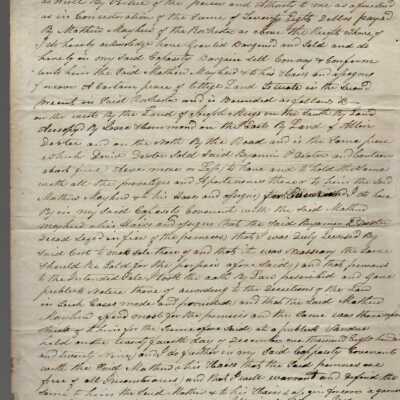 as well By Virtue of the power and Authority to me as aforesaid
as in Consideration of the Sume of Seventy Eight Dollars payed
By Mathew Mayhew of the Rochester as above the Right whereof
I do hereby acknowledge have Granted Bargined and Sold and do
hereby in my Said Capasity Bargain Sell Convay & Confirm
unto him the Said Mathew Mayhew & to his Heirs and assigns
forever A Certain peace of Land Situate in the Second
precinct in Said Rochester and is Bounded as follows
on the west By the Land of on the South By Land
By on the East By Land of
Dexter and on the North By the Road and is the Same piece
which David Dexter Sold Said Benjamin Dexter and Contains
about five Acres more or Less To have and to hold the Same
with all the priveliges and Apartenances thereof to him the Said
Mathew Mayhew & to his Heirs and assigns for Ever and I do also
By in my Said Capasity Covenant with the Said Mathew
Mayhew his Heirs and assigns that the Said Benjamin Dexter
Decd in of the premises, that I was Duly By
Said Cort to make Sale thereof and that it was the Same
Should be Sold for the purpose afore Said; and that previous
to the intended Sale I took the oath By Law perscribed and Gave
publick Notice thereof according to the Directions of the Law
in Such Cases made and provided, and that the Said Mathew
Mayhew most for the premises and the Same was therefore
Struck of to him for the Sume afore Said at a publick Vandue
held on the day of December one thousand Eight hundred
and twenty Nine, and I do further in my Said Capasity Covenant
with the Said Mathew & his Heirs that the Said premises are
free of all Incumbrances, and that I will warrant and defend the
Same to him the Said Mathew & to his Heirs & assigns forever against